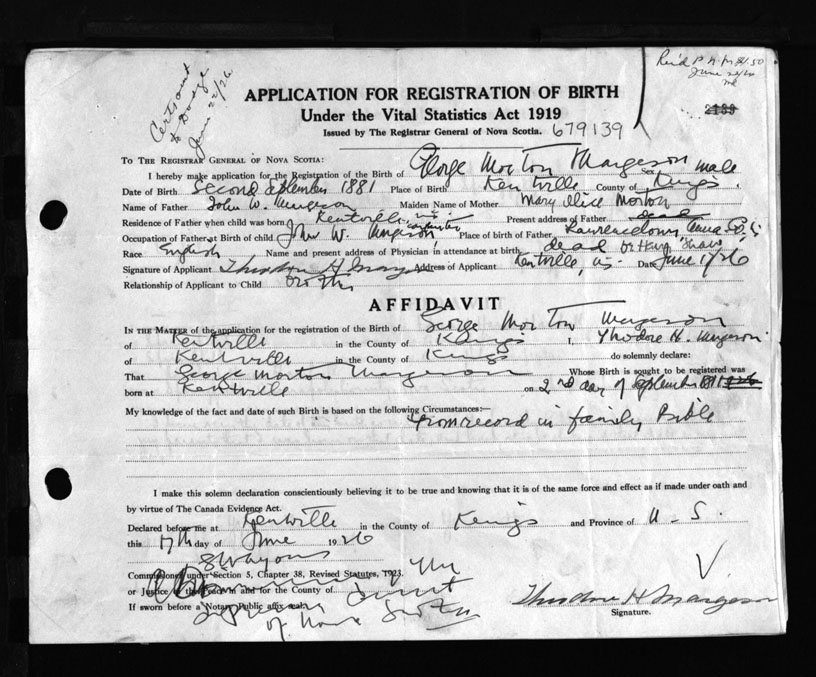 Cert sent
to Dodge
June 22/26
Rec'd P.N. for $1.50
June
2139
APPLICATION FOR REGISTRATION OF BIRTH
Under the Vital Statistics Act 1919
Issued by The Registrar General of Nova Scotia. 679139
TO THE REGISTRAR GENERAL OF NOVA SCOTIA:
I hereby make application for the Registration of the Birth of George Morton Margeson Sex male
Date of Birth Second September 1881 Place of Birth Kentville County of Kings.
Name of Father John W. Margeson Maiden Name of Mother Mary Alice Morton
Residence of Father when child was born Kentville, N.S. Present address of Father dead
Occupation of Father at Birth of child John W. Margeson Place of Birth of Father Lawrencetown, Anna Co,
Race English Name and present address of Physician in attendance at birth dead Dr Shaw
Signature of Applicant Theodore H Margeson Address of Applicant Kentville, NS. Date June 17/26
Relationship of Applicant to Child brother
AFFIDAVIT
IN THE MATTER of the application for the registration of the Birth of George Morton Margeson
of Kentville in the County of Kings I, Theodore H. Margeson
of Kentville in the County of Kings do solemnly declare:
That George Morton Margeson Whose Birth is sought to be registered was
born at Kentville on 2nd day of September 1881
My knowledge of the fact and date of such Birth is based on the following Circumstances:—
from record in family Bible
I make this solemn declaration conscientiously believing it to be true and knowing that it is of the same force and effect as if made under oath and
by virtue of The Canada Evidence Act.
Declared before me at Kentville in the County of Kings and Province of N.S.
this 17th day of June 1926
Commissioned under Section 5, Chapter 38, Revised Statutes, 1923.
or Justice of the Peace in and for the County of
If sworn before a Notary Public affix seal.
A Commissioner
Supreme Court
of Nova Scotia
Theodore H Margeson
Signature.